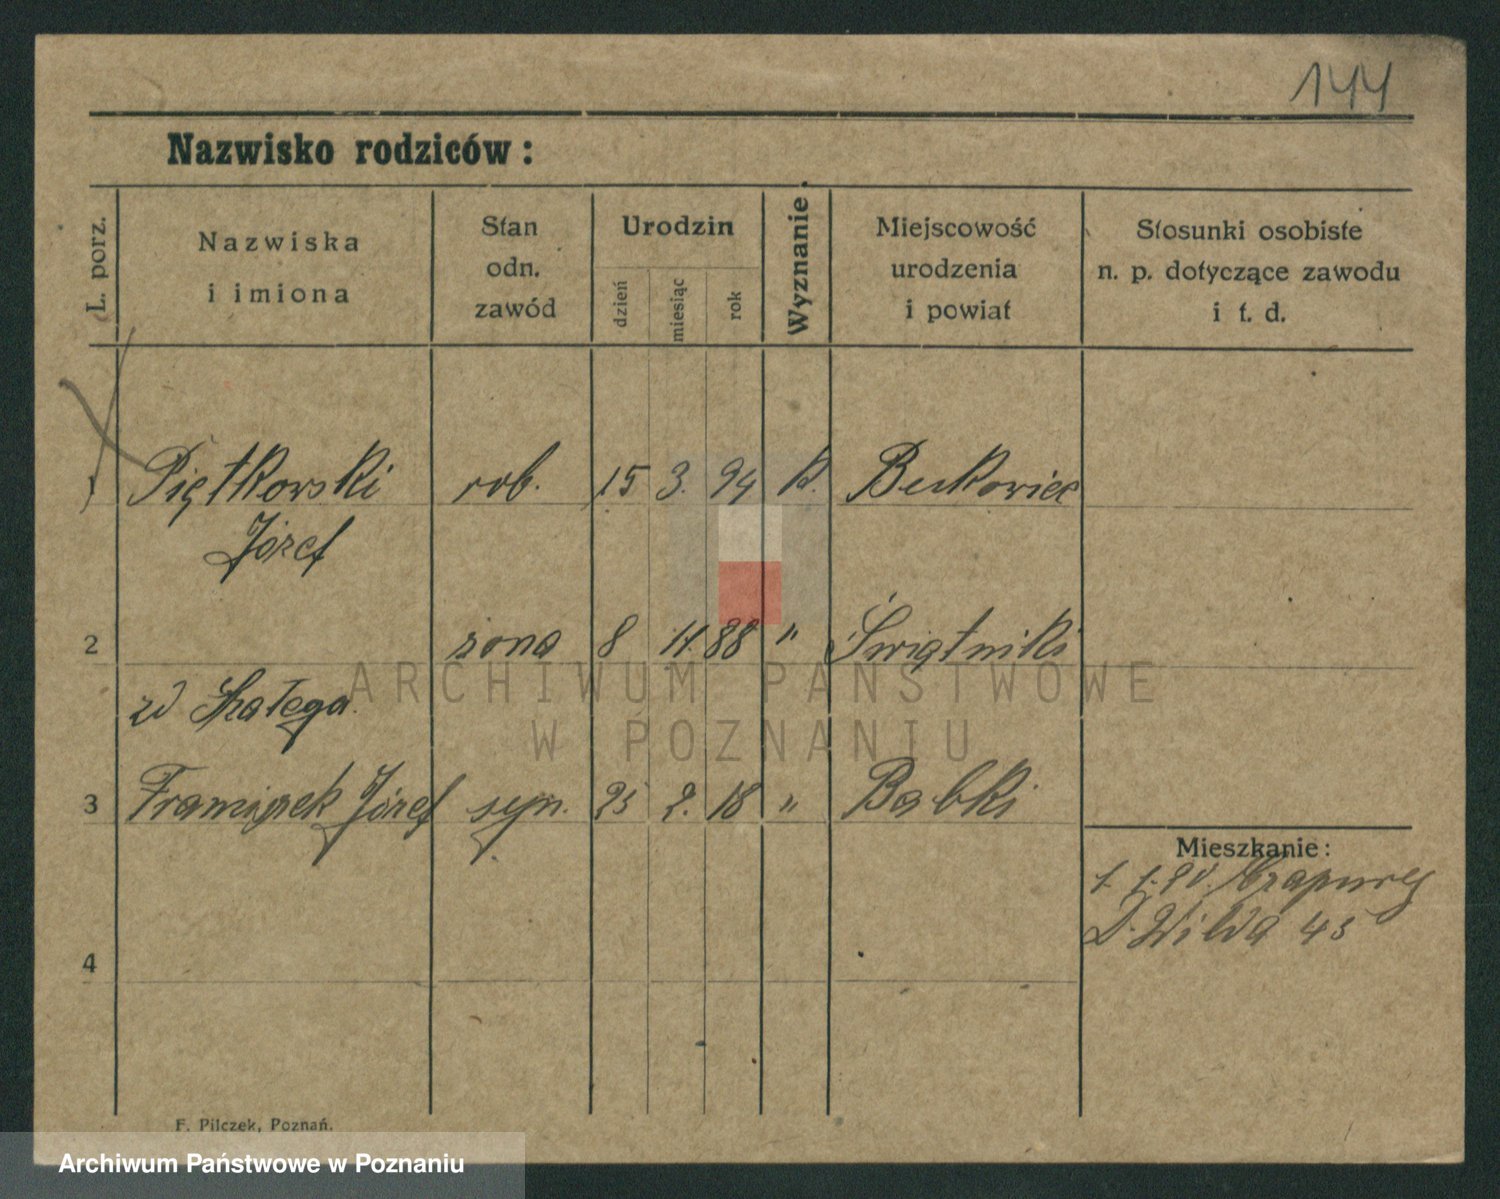 144
Nazwisko rodziców:
L. porz.
Nazwiska
i imiona
Stan
odn.
zawód
Urodzin
dzień
miesiąc
rok
Wyznanie.
Miejscowość
urodzenia
i powiat
Stosunki osobiste
n. p. dotyczące zawodu
i t. d.
1 Piętkowski rob. 15 3. 94 k.
Józef
2 żona 8 11. 88 " Świątniki
zd
3 Franciszek Józef syn. 25 2. 18 " Babki
Mieszkanie:
D. Wilda 45
4
F. Pilczek, Poznań.
ARCHIWUM PAŃSTWOWE
W POZNANIU
Archiwum Państwowe w Poznaniu